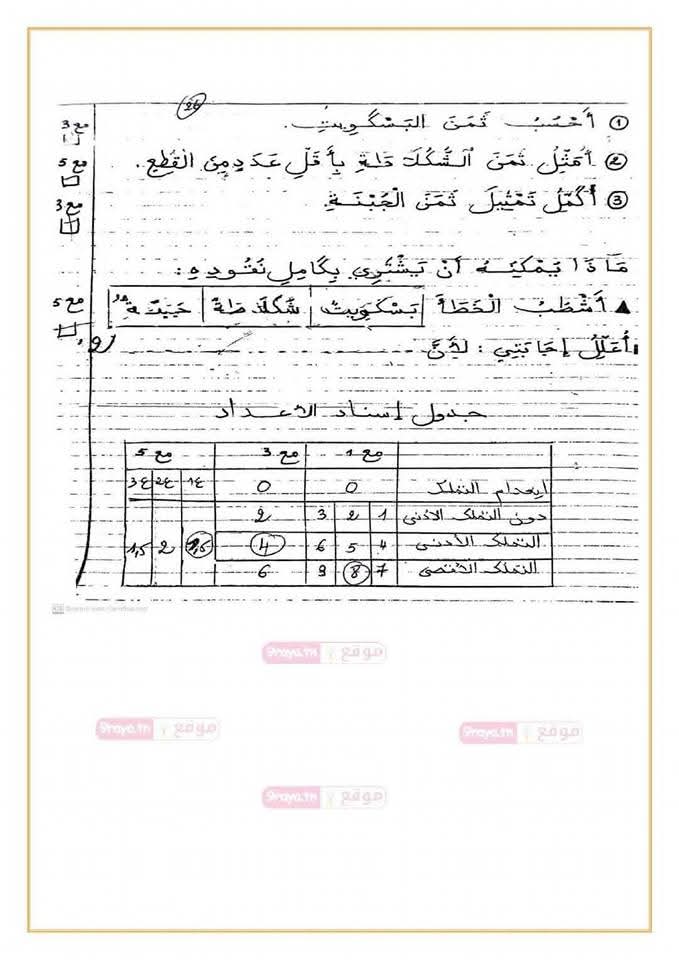 26
① أَحْسُبُ ثَمَنَ البَسْكَوِيتِ. مع 3
② أُمَثِّلُ ثَمَنَ الشُّكُلَاطَةِ بِأَقَلِّ عَدَدٍ مِنَ القِطَعِ. مع 5
③ أُكَمِّلُ تَمْثِيلَ ثَمَنِ الْجُبْنَةِ. مع 3
مَاذَا يُمْكِنُهُ أَنْ يَشْتَرِيَ بِكَامِلِ نُقُودِهِ:
▲ أَشْطُبُ الْخَطَأَ بَسْكَوِيتٌ شُكُلَاطَةٌ مع 5
أُعَلِّلُ إِجَابَتِي: لِأَنَّ
جدول إسناد الأعداد
مع 1 مع 3 مع 5
إنعدام التملك 0 0 ع1 ع2 ع3
دون التملك الأدنى 1 2 3 2
التملك الأدنى 4 5 6 4 1,5 2 1,5
التملك الأقصى 7 8 9 6
موقع 9raya.tn
موقع 9raya.tn
موقع 9raya.tn
موقع 9raya.tn